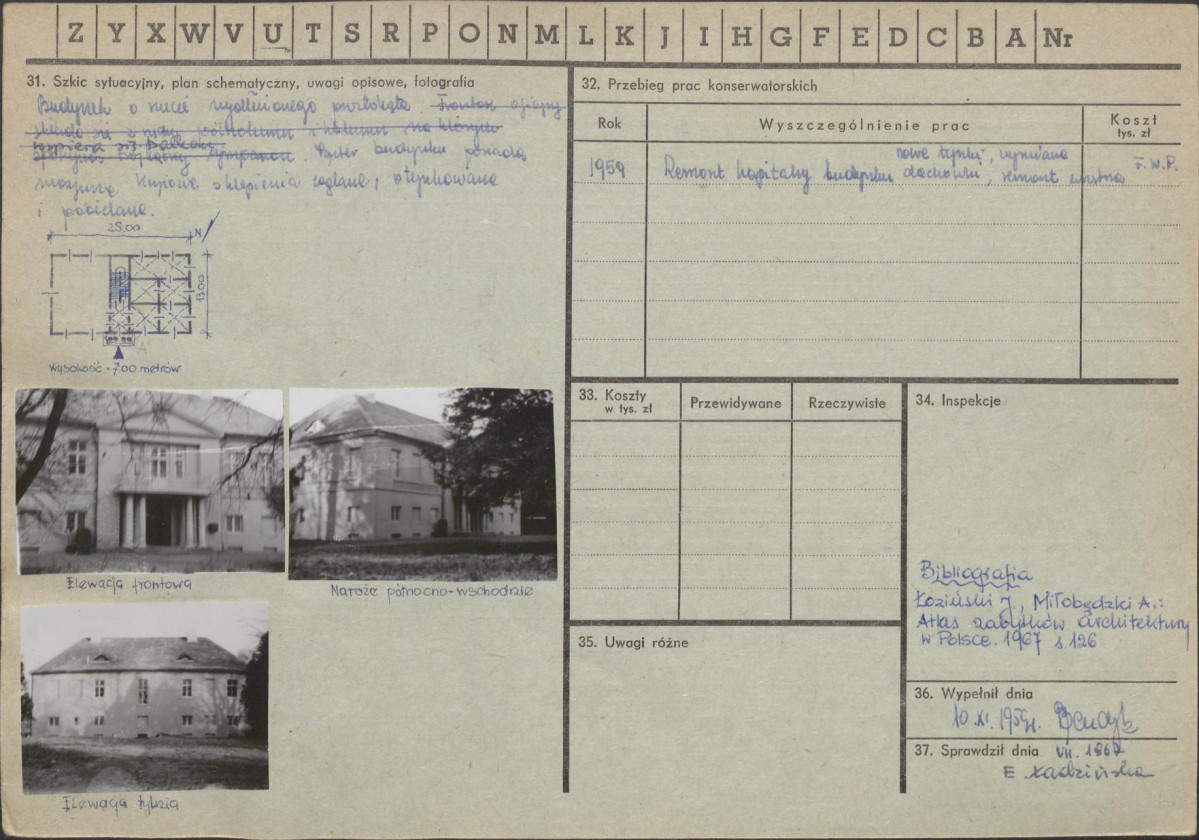 Z Y X W V U T S R P O N M L K J I H G F E D C B A Nr
31. Szkic sytuacyjny, plan schematyczny, uwagi opisowe, fotografia
Budynek o rzucie wydłużonego prostokąta. Fronton
składa się z półkolumn i kolumn na których
wspiera się balkon.
trójkątny tympanon. Parter budynku posiada
sklepienia ceglane, otynkowane
i pobielane.
25.00
N
13.00
A
Wysokość - 7.00 metrów
Elewacja frontowa
Naroże północno-wschodnie
Elewacja tylnia
32. Przebieg prac konserwatorskich
Rok
Wyszczególnienie prac
Koszt
tys. zł
1959
nowe tynki, wymiana
Remont kapitalny budynku dachówki, remont wnętrza
F.W.P.
33. Koszty
w tys. zł
Przewidywane
Rzeczywiste
34. Inspekcje
Bibliografia
Łoziński J., Miłobędzki A.:
Atlas zabytków architektury
w Polsce. 1967 s. 126
35. Uwagi różne
36. Wypełnił dnia
10.XI.1959r.
37. Sprawdził dnia VII. 1967
E. Kadzińska